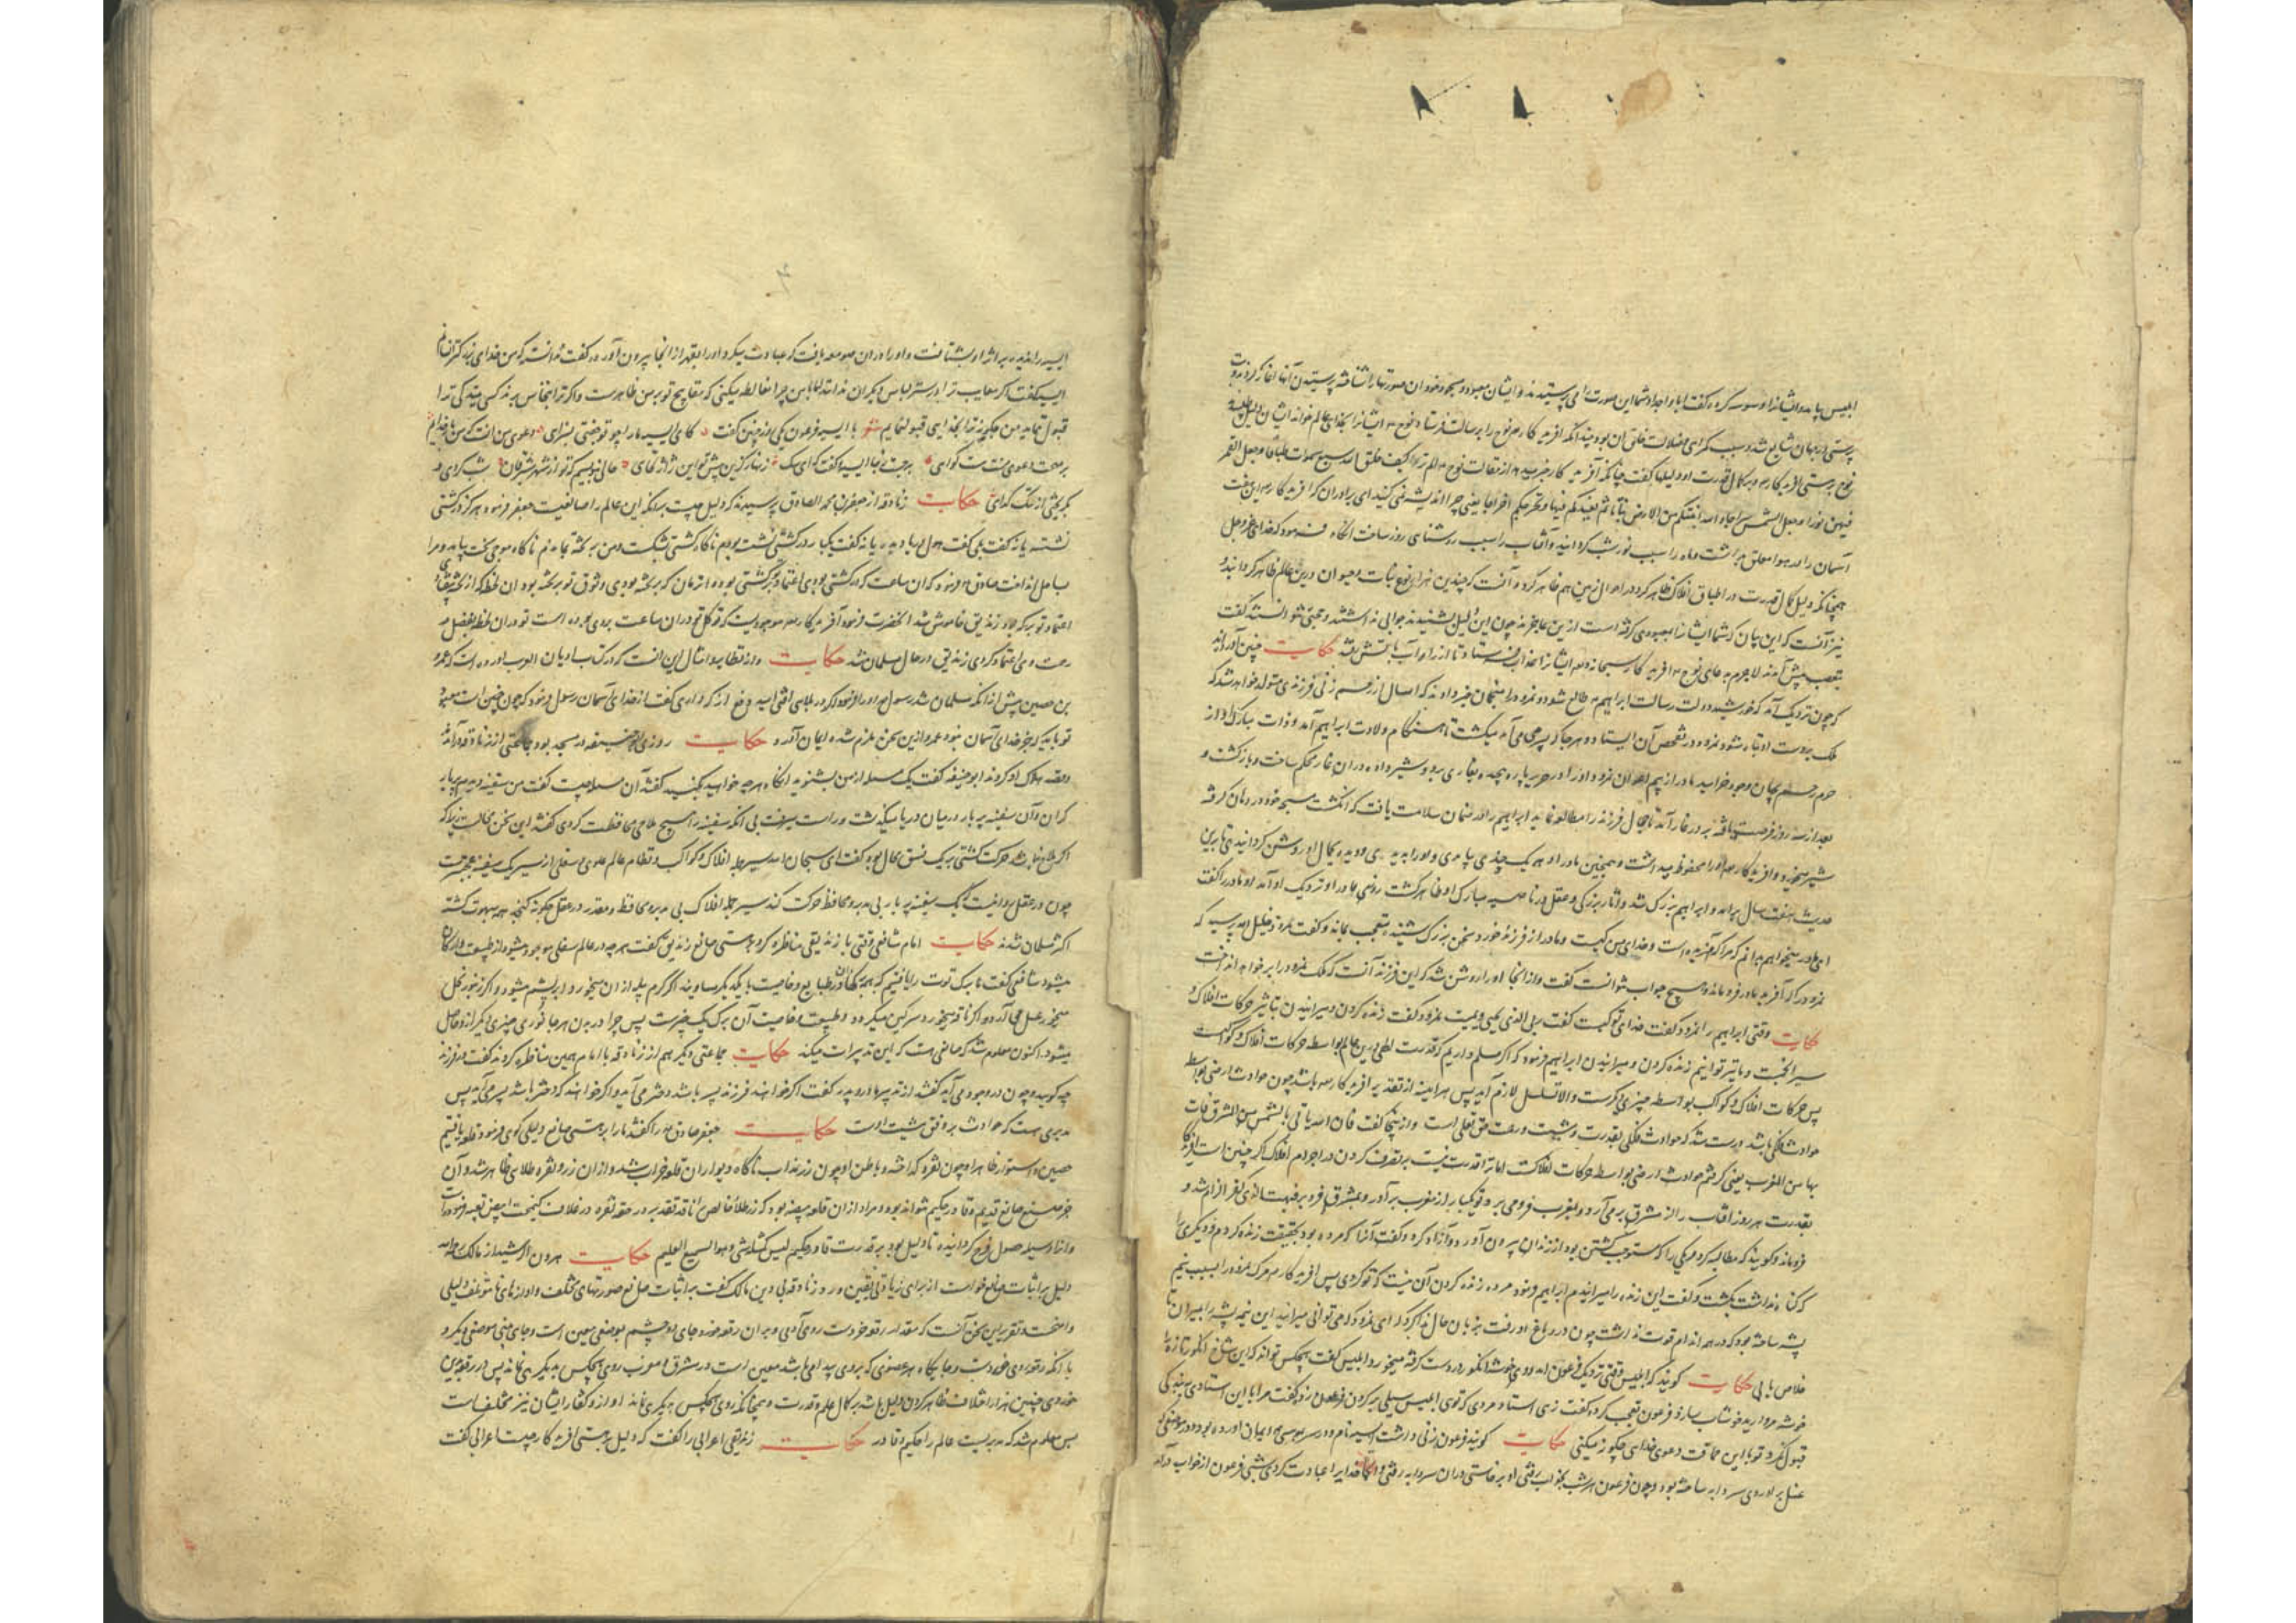 ابلیس بیامد و ایشانرا وسوسه کرد و گفت ابا و اجداد شما این صورتها می پرستیدند و ایشان معبود و مسجود خود ان صورتها را شناختند پرستیدن آنها اغاز کردند و بت
پرستی در جهان شایع شد و سبب گمراهی و ضلالت خلق آن بود بعد از آنکه افریدگار نوح را برسالت فرستاد و نوح ایشانرا بخدای عالم خواند ایشان دلیل طلبیدند
نوح بر هستی افریدگار و بر کمال قدرت او دلیلها گفت چنانکه افریدگار خبر میدهد از مقالت نوح الم تروا کیف خلق الله سبع سموات طباقا و جعل القمر
فیهن نورا و جعل الشمس سراجا و الله انبتکم من الارض نباتا ثم یعیدکم فیها و یخرجکم اخراجا یعنی چرا اندیشه نمی کنید ای برادران که افریدگار هفت
آسمان را در هوا معلق بداشت و ماه را سبب نور شب گردانید و آفتاب را سبب روشنای روز ساخت انگاه فرمود که خدای عز و جل
همچنانکه دلیل کمال قدرت در اطباق افلاک ظاهر کرد در احوال زمین هم ظاهر کرد و آنست که چندین هزار نوع نبات و حیوان درین عالم ظاهر گردانید و
نیز آنست که این بتان که شما ایشانرا بمعبودی گرفته است ازین عاجزند چون این دلیل بشنیدند جوابی نداشتند و حجتی نتوانستند گفت
بتعصب پیش آمدند لاجرم بدعای نوح افریدگار سبحانه و تعالی ایشانرا عذاب فرستاد تا از راه آب باتش رفتند حکایت چنین آورده اند
که چون نزدیک آمد که خورشید دولت رسالت ابراهیم طالع شود و نمرود را منجمان خبر دادند که امسال از رحم زنی فرزندی متولد خواهد شد که
ملک بر دست او تباه شود نمرود در تفحص آن ایستاد و هرجا که پسری می آمد میکشت تا هنگام ولادت ابراهیم آمد و ذات مبارک او از
حرم رحم بجهان وجود خرامید مادر از بیم اعوان نمرود او را در حریر پاره پیچید و بغاری برد و شیر داد و در آن غار محکم ساخت و بازگشت و
بعد از سه روز فرصت یافته بدر غار آمد تا حال فرزند را مطالعه نماید ابراهیم را در ضمان سلامت یافت که انگشت مسبحه خود در دهان گرفته
شیر میخورد و افریدگار او را محفوظ میداشت و همچنین مادر او هر یک چندی بیامدی و او را بدیدی و دیده بکمال او روشن گردانیدی تا برین
حدیث هفت سال برآمد و ابراهیم بزرگ شد و آثار بزرگی و عقل در ناصیه مبارک او ظاهر گشت روزی مادر او نزدیک او آمد او مادر را گفت
ای مادر میخواهم بدانم که مرا که آفریده است و خدای من کیست و مادر از فرزند خرد سخن بزرگ شنید متعجب بماند و گفت نمرود خلیل الله پرسید که
نمرود را که آفرید مادر فروماند و هیچ جواب نتوانست گفت و از انجا او را روشن شد که این فرزند آنست که ملک نمرود را بر خواهد انداخت
حکایت وقتی ابراهیم را نمرود گفت خدای تو کیست گفت ربی الذی یحیی و یمیت نمرود گفت زنده کردن و میرانیدن بتاثیر حرکات افلاک و
سیر انجمست و ما نیز توانیم زنده کردن و میرانیدن ابراهیم فرمود که اگر مسلم داریم که قدرت الهی درین عالم بواسطه حرکات افلاک و کواکبست
پس حرکات افلاک و کواکب بواسطه چیزی دیگرست و الا تسلسل لازم آید پس هر اینه از تقدیر افریدگار باشد چون حوادث ارضی بواسطه
حوادث فلکی باشد درست شد که حوادث فلکی بقدرت و مشیت و رحمت حق تعالی است و از اینجا گفت فان الله یاتی بالشمس من المشرق فات
بها من المغرب یعنی گرفتم حوادث ارضی بواسطه حرکات افلاکست اما ترا قدرت نیست بر تصرف کردن در اجرام افلاک اگر چنین است افریدگار
بقدرت هر روز افتاب را از مشرق بر می آرد و بمغرب فرو می برد تو یکبار از مغرب بر آور و بمشرق فرو بر فبهت الذی کفر الزام شد و
فروماند و گویند که مطالبه کرد و یکی را که مستوجب کشتن بود از زندان بیرون آورد و آزاد کرد و گفت آنرا که مرده بود بحقیقت زنده کردم و دیگری را
که گناه نداشت بکشت و گفت این زنده را میرانیدم ابراهیم فرمود مرده زنده کردن آن نیست که تو کردی پس افریدگار مرگ نمرود را بسبب نیم
پشه ساخته بود که در همه اندام قوت نداشت چون در دماغ او رفت بزبان حال ندا کرد که ای نمرود اگر می توانی میرانید این نیم پشه را بمیران تا
خلاص یابی حکایت گویند که ابلیس وقتی نزدیک فرعون آمد و وی خوشه انگور در دست گرفته میخورد ابلیس گفت هیچکس تواند که این شاخ انگور تازه را
خوشه مروارید خوشاب سازد فرعون تعجب کرد و گفت زهی استاد مردی که توی ابلیس سیلی بر گردن فرعون زد و گفت مرا با این استادی ببندگی
قبول نکرد تو با این حماقت دعوی خدائی چگونه میکنی حکایت گویند فرعون زنی داشت آسیه نام و در سر بموسی ایمان آورده بود و در موضعی که
غسل بر آوردی سردابه ساخته بود و چون فرعون هر شب بخواب رفتی او برخاستی و در آن سردابه رفتی و خدایرا عبادت کردی شبی فرعون از خواب درآمد
آسیه را ندید بر اثر او بشتافت و او را در ان صومعه یافت که عبادت میکرد او را بقهر از انجا بیرون آورد و گفت ندانسته که من خدای بزرگترانم
آسیه گفت اگر معایب ترا در ستر لباس دیگران ندانند اما با من چرا مغالطه میکنی که مقابح تو بر من ظاهرست و اگر ترا انجاس برند کسی ببندگی ترا
قبول نماید من چگونه ترا بخدایی قبول نمایم شعر با آسیه فرعون یکی روز چنین گفت کای آسیه ما را چو تو جفتی بسزای دعوی من آنست که من بار خدایم
بر صحت دعوی منت هست گوای برجست ز جا آسیه و گفت که ای سگ زنهار کزین پیش تو این ژاژ نخای
بگریختی از ننگ گدای حکایت زنادقه از جعفر بن محمد الصادق پرسیدند که دلیل چیست بر آنکه این عالم را صانعیست جعفر فرمود هرگز در کشتی
نشسته یا نه گفت بلی گفت هول دریا دیده یا نه گفت یکبار در کشتی نشسته بودم ناگاه کشتی بشکست و من بر تخته بماندم ناگاه موجی سخت بیامد و مرا
بساحل انداخت صادق فرمود که آن ساعت که در کشتی بودی اعتماد تو بر کشتی بود و از زمان که بر تخته بودی وثوق تو بر تخته بود ان لحظه که از تخته بیفتادی
اعتماد تو بر که بود زندیق خاموش شد آنحضرت فرمود آفریدگار موجودیست که توکل تو در ان ساعت بر وی بوده است تو در آن لحظه بفضل و
رحمت وی اعتماد کردی زندیق در حال مسلمان شد حکایت و از نظایر و امثال این آنست که در کتاب ادیان العرب آورده است که عمرو
بن حصین پیش از آنکه مسلمان شد رسول او را فرمود اگر در بلایی افتی امید دفع از که داری گفت از خدای آسمان رسول فرمود که چون چنین است معبود
تو باید که جز خدای آسمان نبود عمرو ازین سخن ملزم شد و ایمان آورد حکایت روزی ابو حنیفه در مسجد بود جماعتی از زنادقه درآمدند
و قصد هلاک او کردند ابو حنیفه گفت یک مسئله از من بشنوید انگاه هرچه خواهید بکنید گفتند آن مسئله چیست گفت من سفینه دیدم پر بار
گران و آن سفینه پر بار در میان دریا میگذشت و راست میرفت بی آنکه سفینه را هیچ ملاحی محافظت کردی گفتند این سخن محالست زیرا که
اگر ملاح نباشد حرکت کشتی بر یک نسق محال بود گفت ای سبحان الله سیر جمله افلاک و کواکب و نظام عالم علوی و سفلی از سیر یک سفینه عجب ترست
چون در عقل روا نیست که یک سفینه پر بار بی مدبر و محافظ حرکت کند سیر جمله افلاک بی مدبر و محافظ و مقدر در عقل چگونه گنجد همه مبهوت گشته
اکثر مسلمان شدند حکایت امام شافعی وقتی با زندیقی مناظره کرد بهستی صانع زندیق گفت هرچه در عالم سفلی موجود میشود از طبیعت و ارکان
میشود شافعی گفت ما برگ توت را یافتیم که همه برگها در طبایع و خاصیت با یکدیگر مساویند اگر کرم پیله از ان میخورد ابریشم میشود و اگر زنبور نحل
میخورد عسل می آرد و اگر ناقه میخورد سرگین میگردد و طبیعت و خاصیت آن برگ یک چیزست پس چرا در بدن هر جانوری چیزی دیگر از و حاصل
میشود اکنون معلوم شد که صانعی هست که این تدبیرات میکند حکایت جماعتی دیگر هم از زنادقه با امام همین مناظره کردند گفت در فرزند
چه گویید و چون در وجود می آید گفتند از تدبیر مادر و پدر گفت اگر خواهند فرزند پسر باشد دختر می آید و اگر خواهند که دختر باشد پسر می آید پس
مدبری هست که حوادث بر وفق مشیت اوست حکایت جعفر صادق را گفتند ما را بر هستی صانع دلیلی گوی فرمود قلعه یافتیم
حصین و استوار ظاهر او چون نقره گداخته و باطن او چون زر مذاب ناگاه دیوار ان قلعه خراب شد و از ان زر و نقره طلای ظاهر شد و آن
جز صنع صانع قدیم و قادر حکیم نتواند بود و مراد از ان قلعه بیضه بود
و انرا وسیله حصول فرخ گردانیده تا دلیل بود بر قدرت قادر حکیم لیس کمثله شی و هو السمیع العلیم حکایت هرون الرشید از مالک رحمه الله
دلیل بر اثبات صانع خواست از برای زیادتی یقین و رد زنادقه بی دین مالک گفت بر اثبات صانع صورتهای مختلف و اوازهای نامؤتلف دلیلی
واضحست و تقریر این سخن آنست که مقدار رقعه خردست روی آدمی و بران رقعه خرد جای دو چشم بموضعی معین است و جای بینی بموضعی دیگر و
با آنکه رقعه روی خردست و جایگاه هر عضوی که بر وی پیدا می باشد معین است در مشرق و مغرب روی هیچکس بدیگری نماند پس در رقعه بدین
خردی چنین هزار اختلاف ظاهر کردن دلیل باشد بر کمال علم و قدرت و همچنانکه روی هیچکس بدیگری نماند اواز و گفتار ایشان نیز مختلف است
پس معلوم شد که مدبریست عالم را حکیم و قادر حکایت زندیقی اعرابی را گفت که دلیل بر هستی افریدگار چیست اعرابی گفت